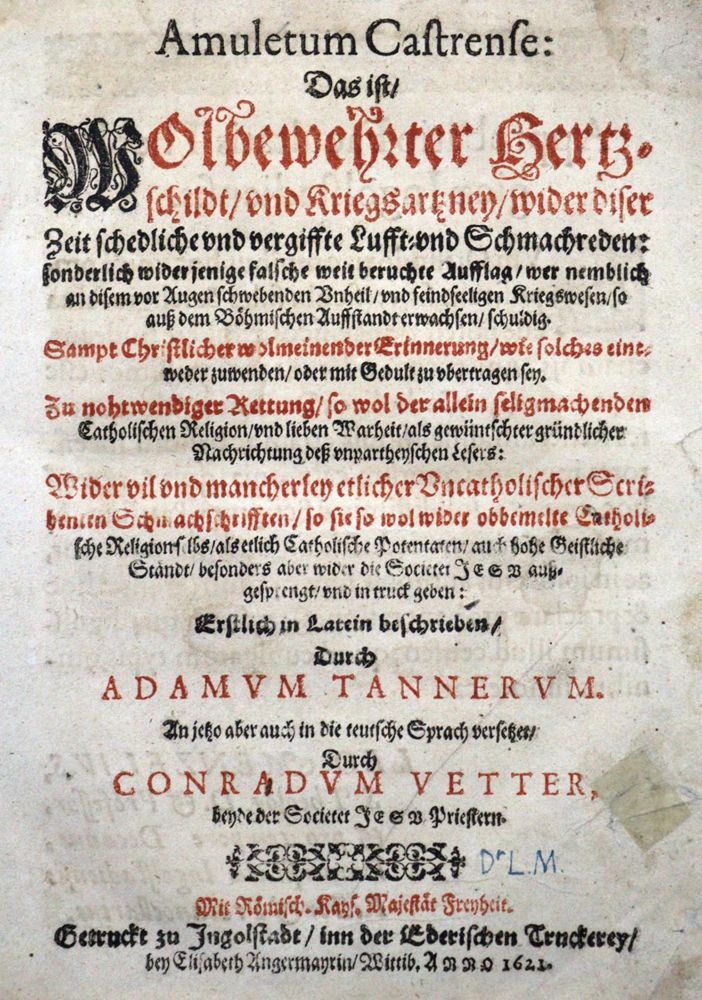 Amuletum Castrense:
Das ist/
WOlbewehrter Hertz-
schildt/ vnd Kriegsartzney/ wider diser
Zeit schedliche vnd vergiffte Lufft-vnd Schmachreden:
sonderlich wider jenige falsche weit beruchte Aufflag/ wer nemblich
an disem vor Augen schwebenden Vnheil/ vnd feindseeligen Kriegswesen/ so
auß dem Böhmischen Auffstandt erwachsen/ schuldig.
Sampt Christlicher wolmeinender Erinnerung/ wie solches eint-
weder zuwenden/ oder mit Gedult zu vbertragen sey.
Zu nohtwendiger Rettung/ so wol der allein seligmachenden
Catholischen Religion/ vnd lieben Warheit/ als gewüntschter gründlicher
Nachrichtung deß vnpartheyschen Lesers:
Wider vil vnd mancherley etlicher Vncatholischer Scri-
benten Schmachschrifften/ so sie so wol wider obbemelte Catholi-
sche Religion selbs/ als etlich Catholische Potentaten/ auch hohe Geistliche
Ständt/ besonders aber wider die Societet JESV auß-
gesprengt/ vnd in truck geben:
Erstlich in Latein beschrieben/
Durch
ADAMVM TANNERVM.
An jetzo aber auch in die teutsche Sprach versetzet/
Durch
CONRADVM VETTER,
beyde der Societet JESV Priestern.
Dr L.M.
Mit Römisch. Kays. Majestät Freyheit.
Getruckt zu Ingolstadt/ inn der Ederischen Truckerey/
bey Elisabeth Angermayrin/ Wittib. ANNO 1621.